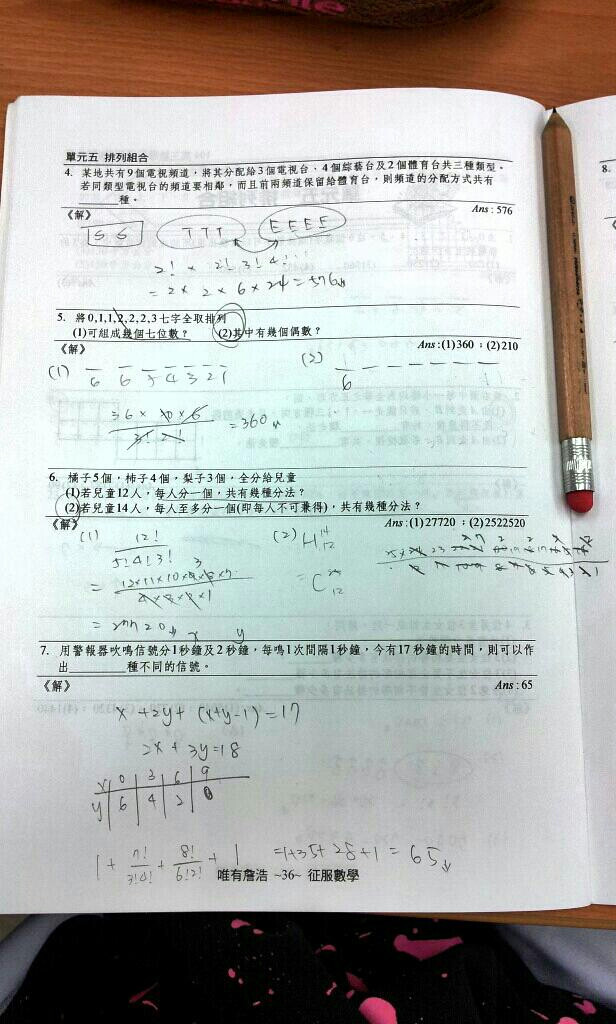 單元五 排列組合
4. 某地共有9個電視頻道，將其分配給3個電視台、4個綜藝台及2個體育台共三種類型。
若同類型電視台的頻道要相鄰，而且前兩頻道保留給體育台，則頻道的分配方式共有
______種。
《解》 Ans : 576
S S T T T E E E E
2! × 2! 3! 4!
= 2 × 2 × 6 × 24 = 576
5. 將0,1,1,2,2,2,3七字全取排列
(1)可組成幾個七位數？ (2)其中有幾個偶數？
《解》 Ans : (1)360；(2)210
(1) 6 6 5 4 3 2 1 (2)
6
36 × 10 × 6
3! 2!
= 360
6. 橘子5個，柿子4個，梨子3個，全分給兒童
(1)若兒童12人，每人分一個，共有幾種分法？
(2)若兒童14人，每人至多分一個(即每人不可兼得)，共有幾種分法？
《解》 Ans : (1)27720；(2)2522520
(1) 12! (2) H
5! 4! 3! 3
= C
= 27720 x y
7. 用警報器吹鳴信號分1秒鐘及2秒鐘，每鳴1次間隔1秒鐘，今有17秒鐘的時間，則可以作
出______種不同的信號。
《解》 Ans : 65
x + 2y + (x+y-1) = 17
2x + 3y = 18
x 0 3 6 9
y 6 4 2 0
1 + 7!/3!4! + 8!/6!2! + 1 = 1+35+28+1 = 65
唯有詹浩 ~36~ 征服數學
8.